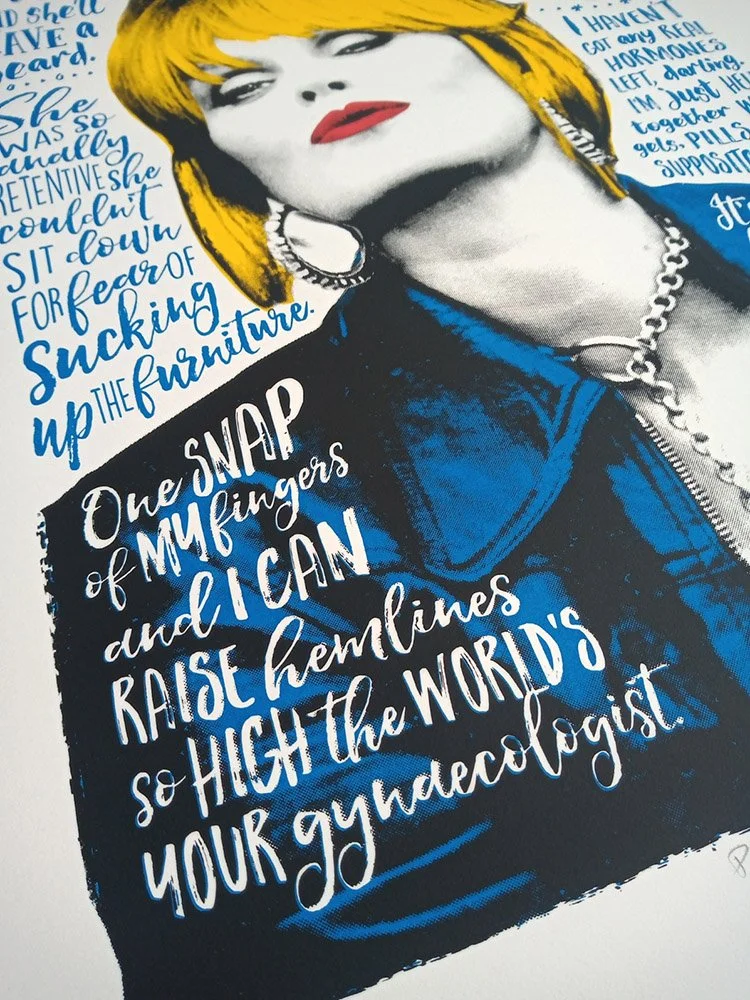 she'll
a
beard.
She
WAS SO
anally
RETENTIVE she
couldn't
SIT down
FOR fear OF
Sucking
up THE furniture.
I HAVEN'T
GOT any REAL
HORMONES
LEFT, darling.
I'M just
together
gels, PILLS
One SNAP
of MY fingers
and I CAN
RAISE hemlines
so HIGH the WORLD'S
YOUR gyndecologist.